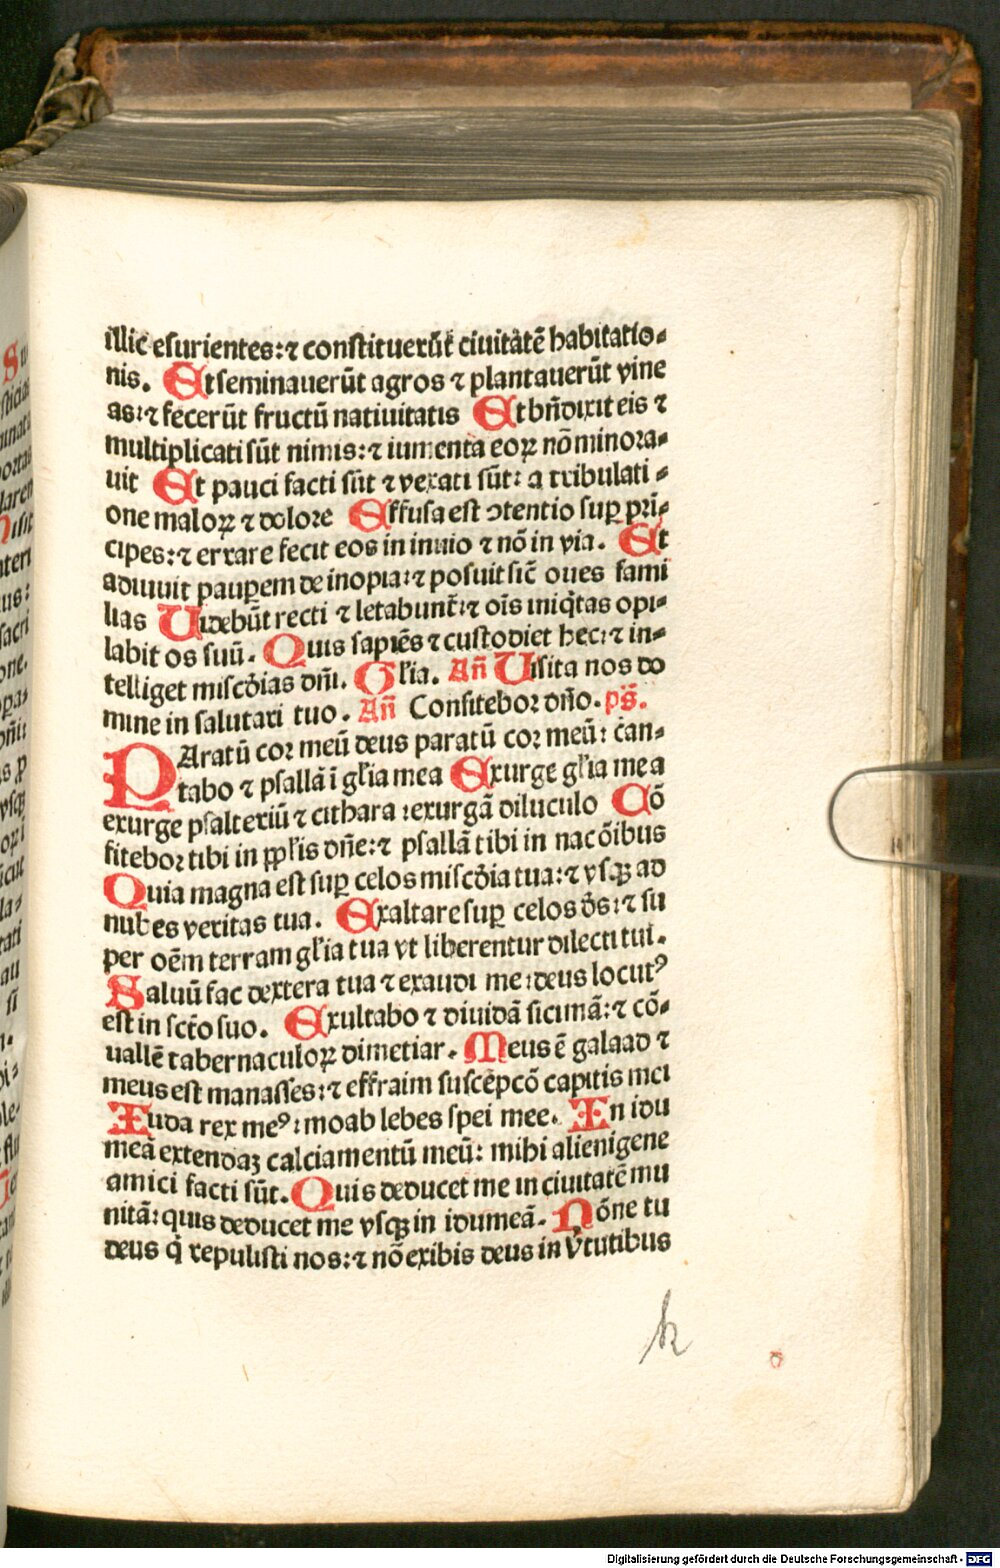 illic̄ esurientes:⁊ constituerūt̄ ciuitatē habitatio⸗
nis. Et seminauerūt agros ⁊ plantauerūt vine
as:⁊ fecerūt fructū natiuitatis Et bn̄dixit eis ⁊
multiplicati sūt nimis:⁊ iumenta eoꝝ nō minora⸗
uit Et pauci facti sūt ⁊ vexati sūt: a tribulati⸗
one maloꝝ ⁊ dolore Effusa est ↄtentio suꝑ prī⸗
cipes:⁊ errare fecit eos in inuio ⁊ nō in via. Et
adiuuit pauꝑem de inopia:⁊ posuit sic̄ oues fami
lias Uidebūt recti ⁊ letabunt̄:⁊ oīs iniq̄tas opi⸗
labit os suū. Quis sapiēs ⁊ custodiet hec:⁊ in⸗
telliget misc̄dias dn̄i. Gl̄ia. An̄ Uisita nos do
mine in salutari tuo. An̄ Confitebor dn̄o. ps̄.
PAratū cor meū deus paratū cor meū: can⸗
tabo ⁊ psallā ī gl̄ia mea Exurge gl̄ia mea
exurge psalteriū ⁊ cithara :exurgā diluculo Cō
fitebor tibi in ꝓpl̄is dn̄e:⁊ psallā tibi in nacōibus
Quia magna est suꝑ celos misc̄dia tua:⁊ vsqꝫ ad
nubes veritas tua. Exaltare suꝑ celos d̄s:⁊ su
per oēm terram gl̄ia tua vt liberentur dilecti tui.
Saluū fac dextera tua ⁊ exaudi me:deus locutꝰ
est in sc̄to suo. Exultabo ⁊ diuidā sicimā:⁊ cō⸗
uallē tabernaculoꝝ dimetiar. Meus ē galaad ⁊
meus est manasses:⁊ effraim suscēpcō capitis mei
Iuda rex meꝰ: moab lebes spei mee. In idu
meā extendaꝫ calciamentū meū: mihi alienigene
amici facti sūt. Quis deducet me in ciuitatē mu
nitā: quis deducet me vsqꝫ in idumeā. Nōne tu
deus q̇ repulisti nos:⁊ nō exibis deus in v̇tutibus
Digitalisierung gefördert durch die Deutsche Forschungsgemeinschaft - DFG